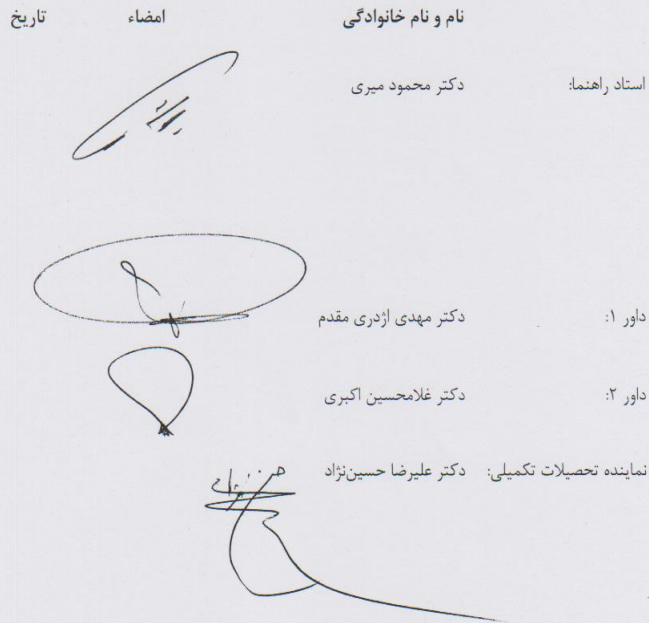 نام و نام خانوادگی امضاء تاریخ
استاد راهنما: دکتر محمود میری
داور ۱: دکتر مهدی اژدری مقدم
داور ۲: دکتر غلامحسین اکبری
نماینده تحصیلات تکمیلی: دکتر علیرضا حسین‌نژاد